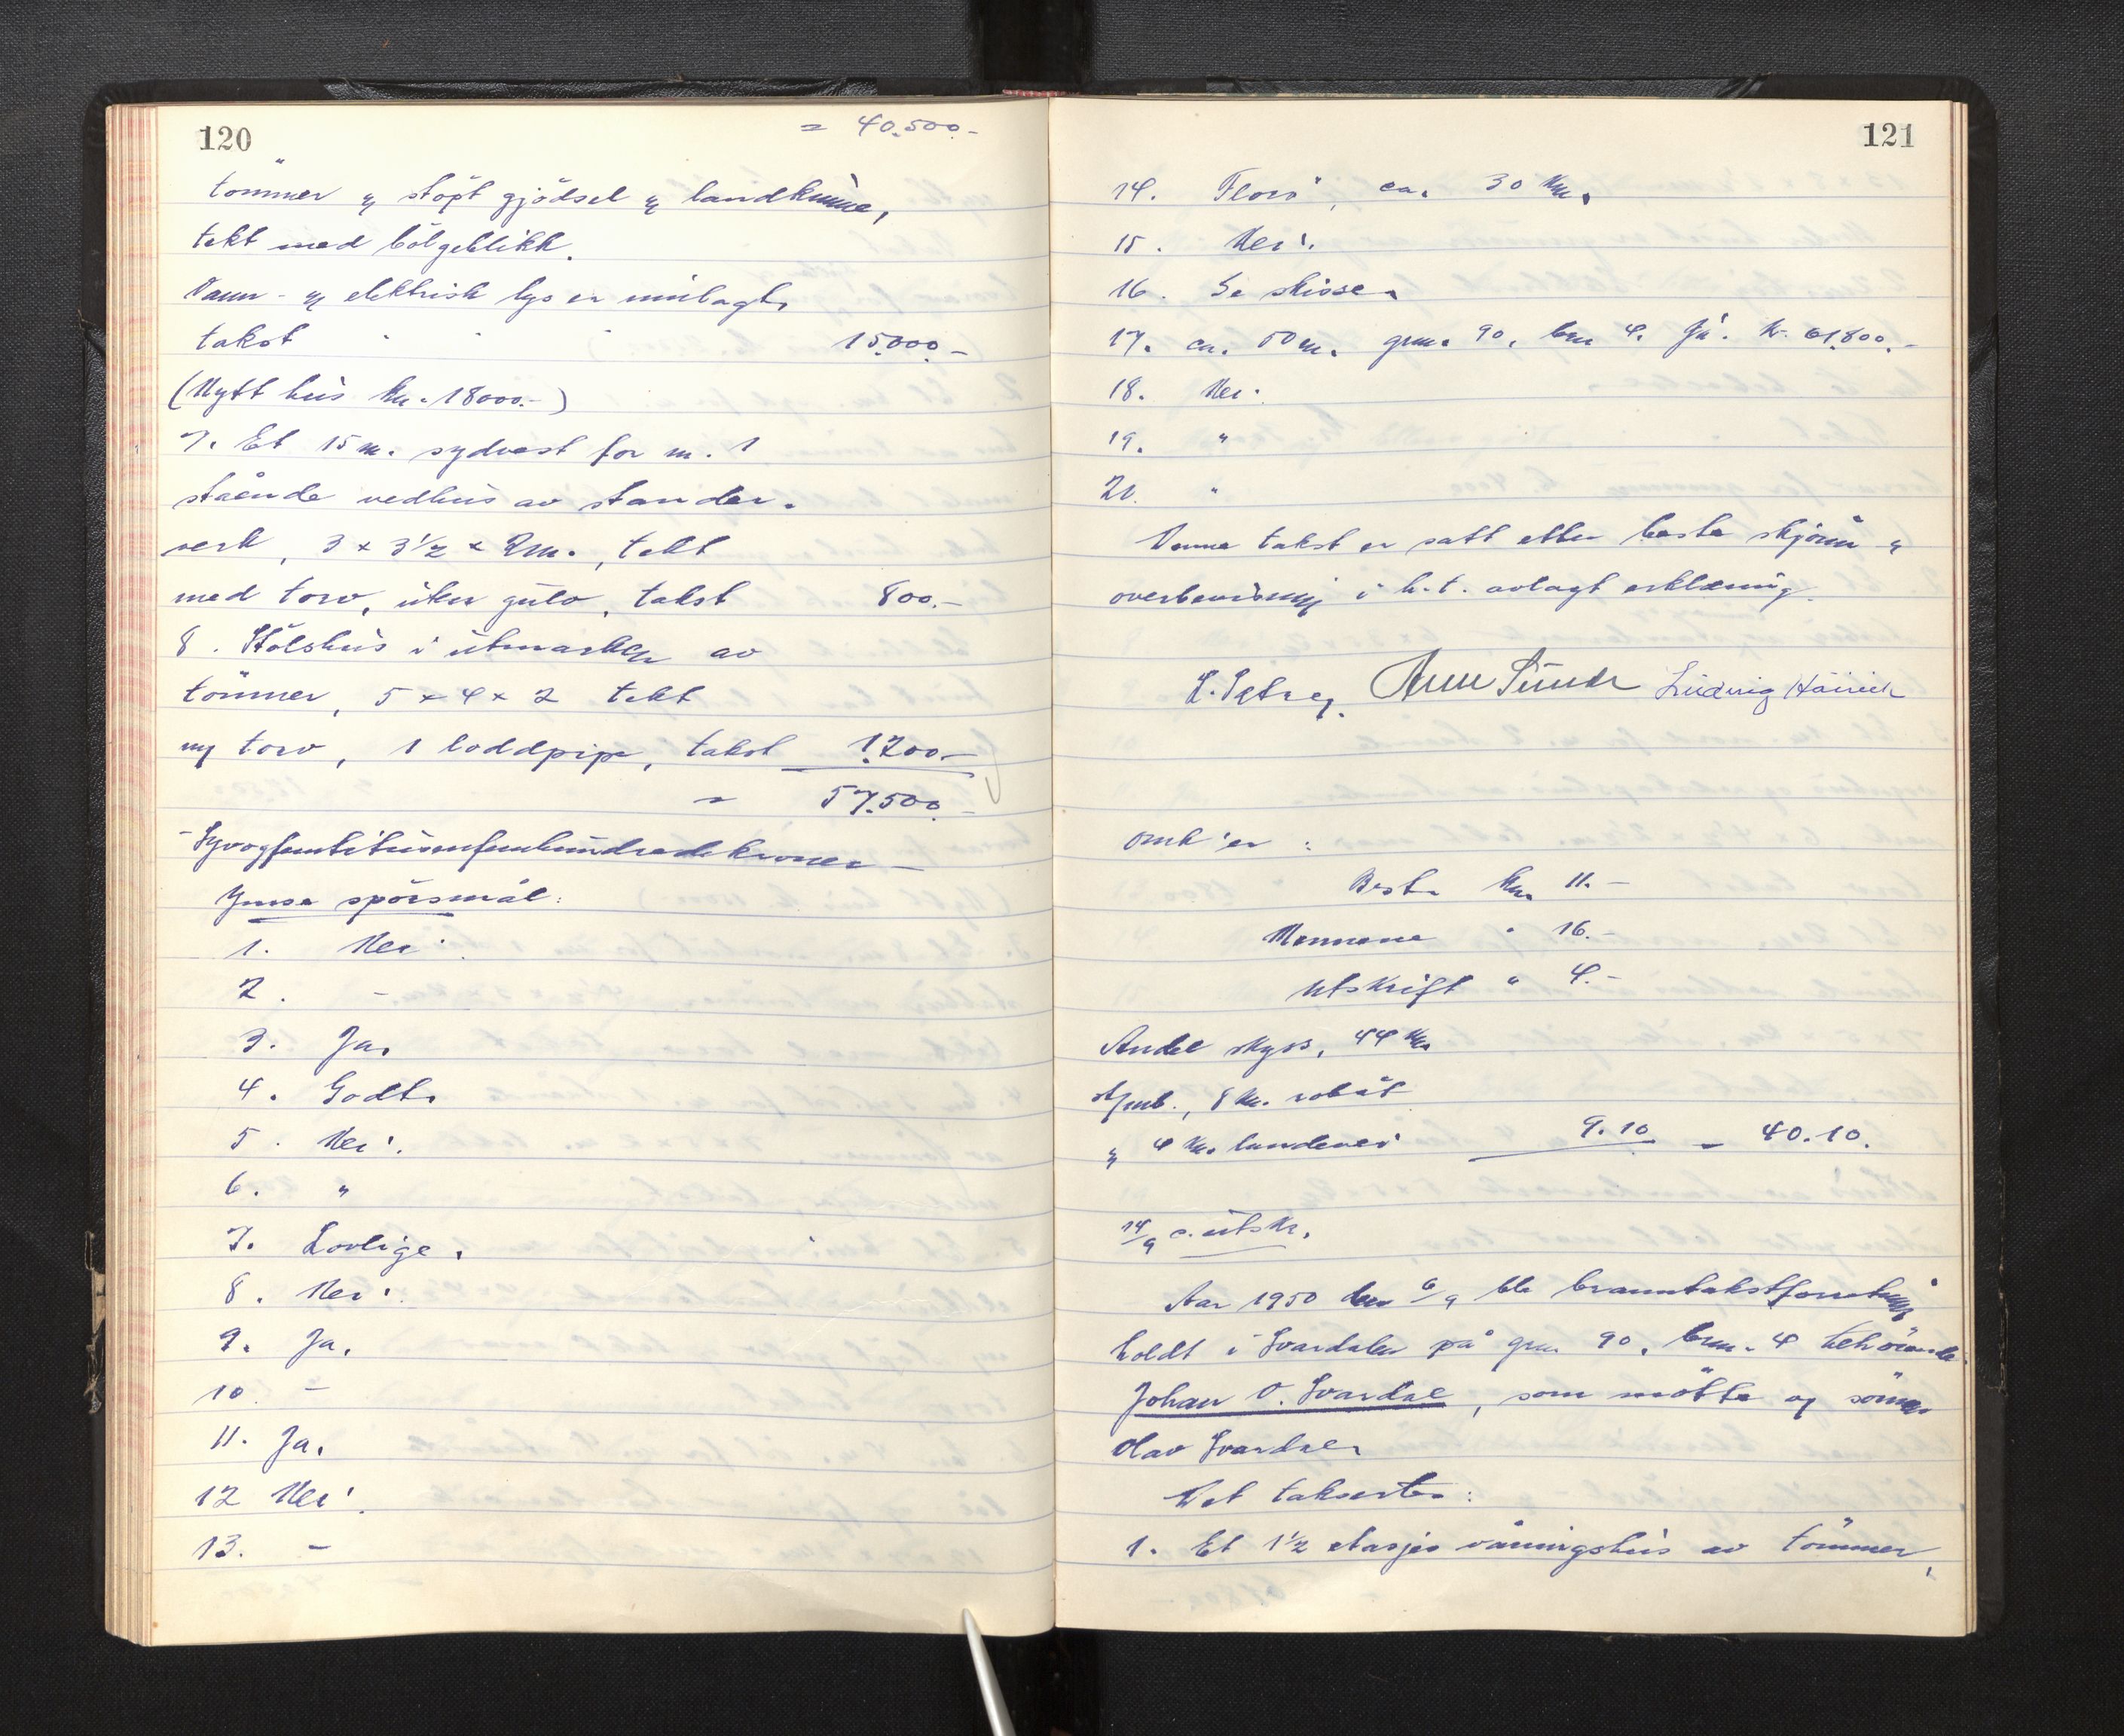 120
= 40.500.-
tömmer og stöpt gjödsel og landkinne,
tekt med bölgeblikk.
Vann- og elektrisk lys er innlagt.
takst 15.000.-
(Nytt hus kr. 18000.-)
7. Et 15 m. sydvest for nr. 1
stående vedhus av stander-
verk, 3 x 3 1/2 x 2 m., tekt
med torv, uten gulv, takst 800.-
8. Stölshus i utmarken av
tömmer, 5 x 4 x 2 tekt
og torv, 1 loddpipe, takst 1200.-
= 57.500.-
Syvogfemtitusenfemhundredekroner -
Ymse spörsmål:
1. Nei.
2. -
3. Ja.
4. Godt.
5. Nei.
6. "
7. Lovlige.
8. Nei.
9. Ja.
10 -
11. Ja.
12 Nei.
13. -
121
14. Florö, ca. 30 km.
15. Nei.
16. Se skisse.
17. ca. 50 m. gnr. 90, bnr 4. Ja. kr. 61.800.-
18. Nei.
19. "
20. "
Denne takst er satt etter beste skjönn og
overbevisning i h.t. avlagt erklæring.
Ludvig
omk'er:
Best. kr. 11.-
Mennene " 16.-
Utskrift " 4.-
Andel skyss, 44 km
8 km. robåt
og 4 km. landevei 9.10 = 40.10.
14/9 s. utskr.
Aar 1950 den 6/9 ble branntakstforretning
holdt i Svardalen på gnr. 90, bnr. 4 tehörende
Johan O. Svardal, som mötte og sönnen
Olav Svardal.
Det takserte:
1. Et 1 1/2 etasjes våningshus av tömmer,